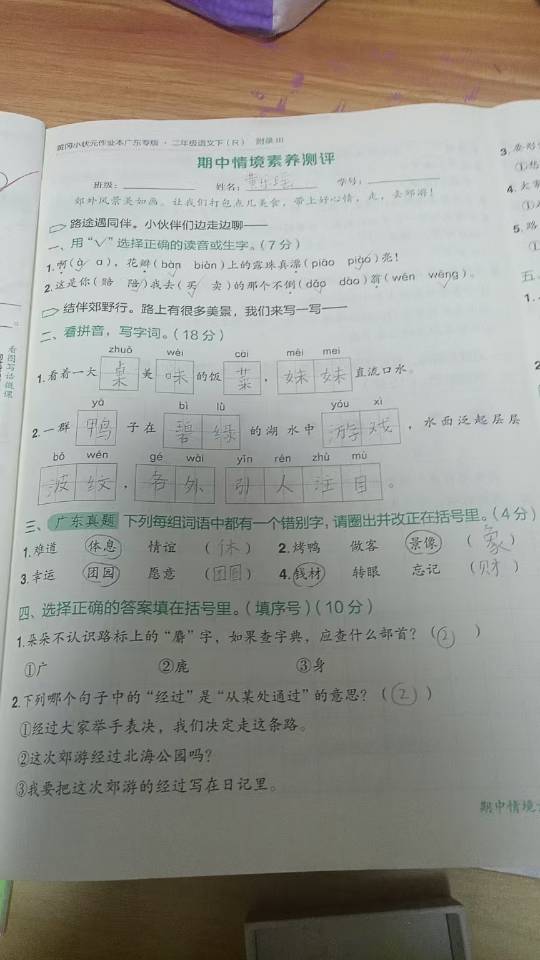 黄冈小状元作业本广东专版·二年级语文下（R） 附录III
期中情境素养测评
班级： 姓名： 学号：
郊外风景美如画。让我们打包点儿美食，带上好心情，走，去郊游！
路途遇同伴。小伙伴们边走边聊——
一、用“√”选择正确的读音或生字。（7分）
1.啊（à a），花瓣（bàn biàn）上的露珠真漂（piào piāo）亮！
2.这是你（赔 陪）我去（买 卖）的那个不倒（dǎo dào）翁（wēn wēng）。
结伴郊野行。路上有很多美景，我们来写一写——
二、看拼音，写字词。（18分）
zhuō wèi cài mèi mei
1.看着一大 桌 美 味 的饭 菜 ， 妹 妹 直流口水。
yā bì lǜ yóu xì
2.一群 鸭 子在 碧 绿 的湖水中 游 戏 ，水面泛起层层
bō wén gé wài yǐn rén zhù mù
波 纹 ，各 外 引 人 注 目 。
三、广东真题 下列每组词语中都有一个错别字，请圈出并改正在括号里。（4分）
1.难道 体息 情谊 （休） 2.烤鸭 做客 景像 （象）
3.幸运 团园 愿意 （团圆） 4.钱材 转眼 忘记 （财）
四、选择正确的答案填在括号里。（填序号）（10分）
1.朵朵不认识路标上的“麝”字，如果查字典，应查什么部首？（②）
①广 ②鹿 ③身
2.下列哪个句子中的“经过”是“从某处通过”的意思？（②）
①经过大家举手表决，我们决定走这条路。
②这次郊游经过北海公园吗？
③我要把这次郊游的经过写在日记里。
期中情境
看图写话微课